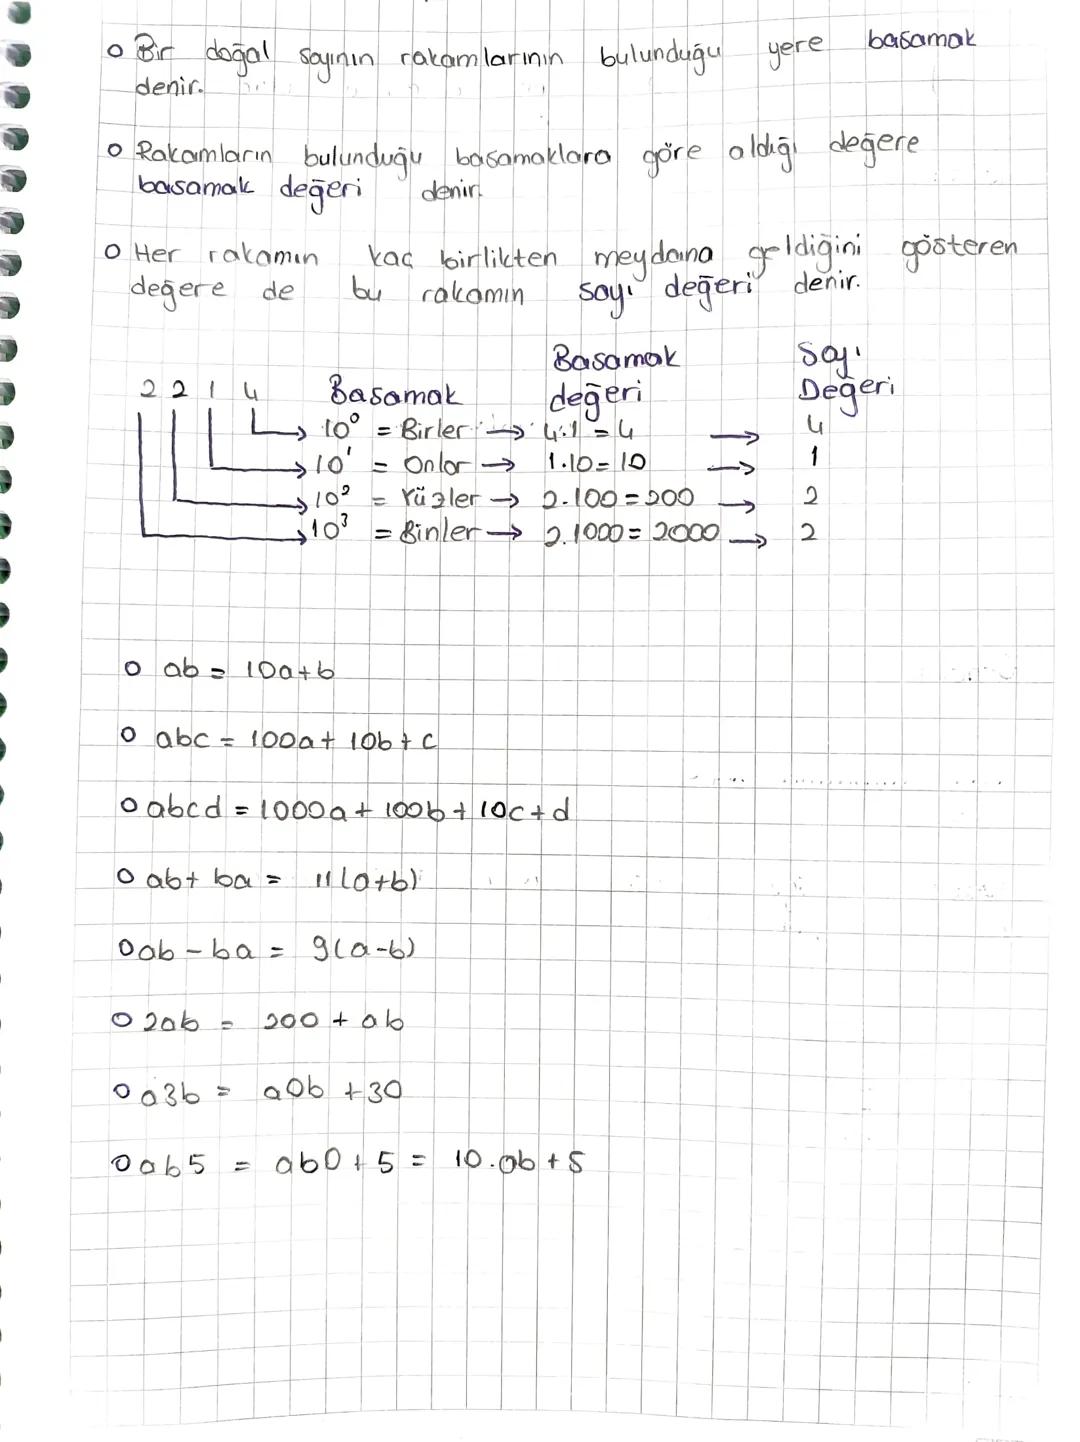 o Bir doğal sayının rakamlarının bulunduğu yere basamak
denir.
o Rakamların bulunduğu basamaklara göre aldığı değere
basamak değeri denir.
o Her rakamın kaç birlikten meydana geldiğini gösteren
değere de bu rakamın sayı değeri denir.
2 2 1 4 Basamak Basamak değeri Sayı Değeri
→ 10⁰ = Birler → 4.1 = 4 → 4
→ 10¹ = Onlar → 1.10 = 10 → 1
→ 10² = Yüzler → 2.100 = 200 → 2
→ 10³ = Binler → 2.1000 = 2000 → 2
o ab = 10a+b
o abc = 100a + 10b + c
o abcd = 1000a + 100b + 10c + d
o ab + ba = 11(a+b)
o ab - ba = 9(a-b)
o 2ab = 200 + ab
o a3b = a0b + 30
o ab5 = ab0 + 5 = 10.ab + 5